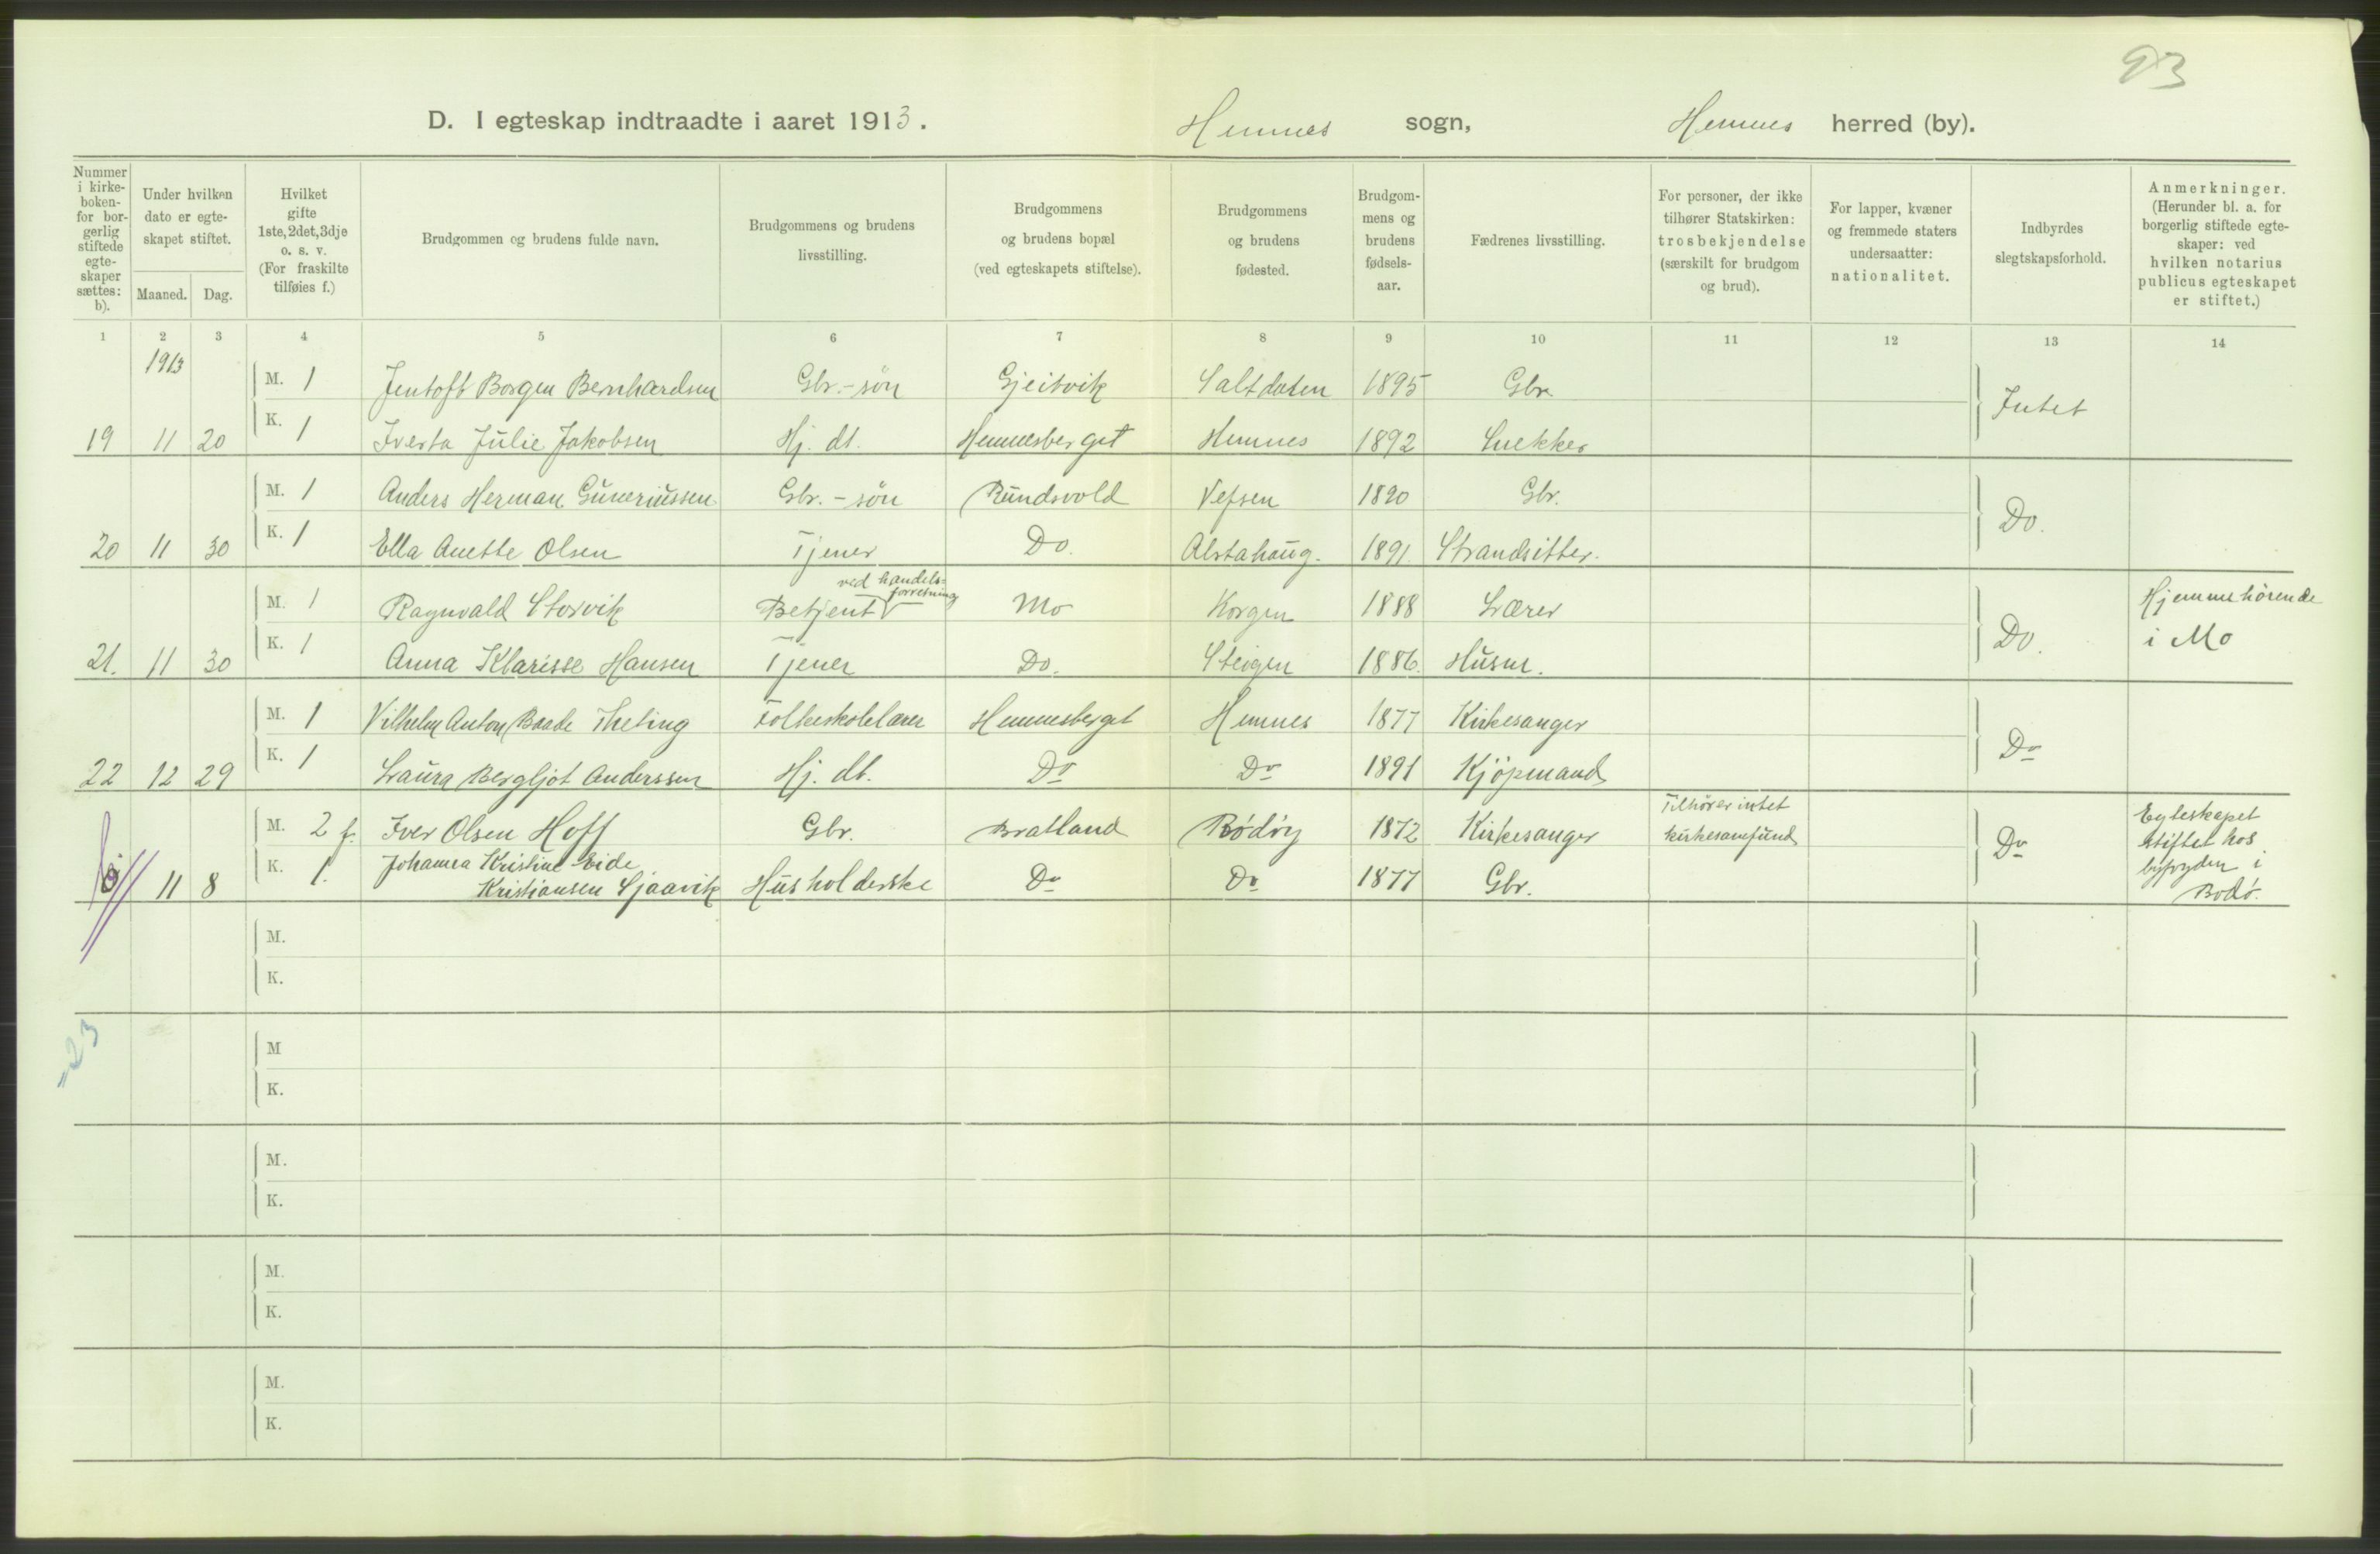 93
D. I egteskap indtraadte i aaret 1913. Hemnes sogn, Hemnes herred (by).
Nummer i kirke-boken- for bor-gerlig stiftede egte-skaper sættes: b).
Under hvilken dato er egte-skapet stiftet.
Maaned. Dag.
Hvilket gifte 1ste, 2det, 3dje o. s. v. (For fraskilte tilføies f.)
Brudgommen og brudens fulde navn.
Brudgommens og brudens livsstilling.
Brudgommens og brudens bopæl (ved egteskapets stiftelse).
Brudgommens og brudens fødested.
Brudgom-mens og brudens fødsels-aar.
Fædrenes livsstilling.
For personer, der ikke tilhører Statskirken: trosbekjendelse (særskilt for brudgom og brud).
For lapper, kvæner og fremmede staters undersaatter: nationalitet.
Indbyrdes slegtskapsforhold.
Anmerkninger. (Herunder bl. a. for borgerlig stiftede egte-skaper: ved hvilken notarius publicus egteskapet er stiftet.)
1 2 3 4 5 6 7 8 9 10 11 12 13 14
1913
M. 1 Jentoft Borgen Bernhardsen Gbr.-søn Gjeitvik Saltdalen 1895 Gbr. Intet
19 11 20 K. 1 Iverta Julie Jakobsen Hj. dt. Hemnesberget Hemnes 1892 Snekker
M. 1 Anders Herman Guneriussen Gbr.-søn Rundsvold Vefsen 1890 Gbr. Do.
20 11 30 K. 1 Ella Anette Olsen Tjener Do. Alstahaug. 1891. Strandsitter.
M. 1 Ragnvald Storvik Betjent ved handels-forretning Mo Korgen 1888 Lærer Do. Hjemmehørende i Mo
21. 11 30 K. 1 Anna Klarisse Hansen Tjener Do. Steigen 1886. Husm.
M. 1 Vilhelm Anton Baade Theting Folkeskolelærer Hemnesberget Hemnes 1877 Kirkesanger Do
22 12 29 K. 1 Laura Bergljot Anderssen Hj. dt. Do Do 1891 Kjøpmand
M. 2 f. Iver Olsen Hoff Gbr. Bratland Rødøy 1872 Kirkesanger Tilhører intet kirkesamfund Do Egteskapet stiftet hos byfogden i Bodø.
11 8 K. 1. Johanna Kristine Eide Kristiansen Sjaavik Husholderske Do Do 1877 Gbr.
M.
K.
= 23
M
K.
M.
K.
M.
K.
M.
K.